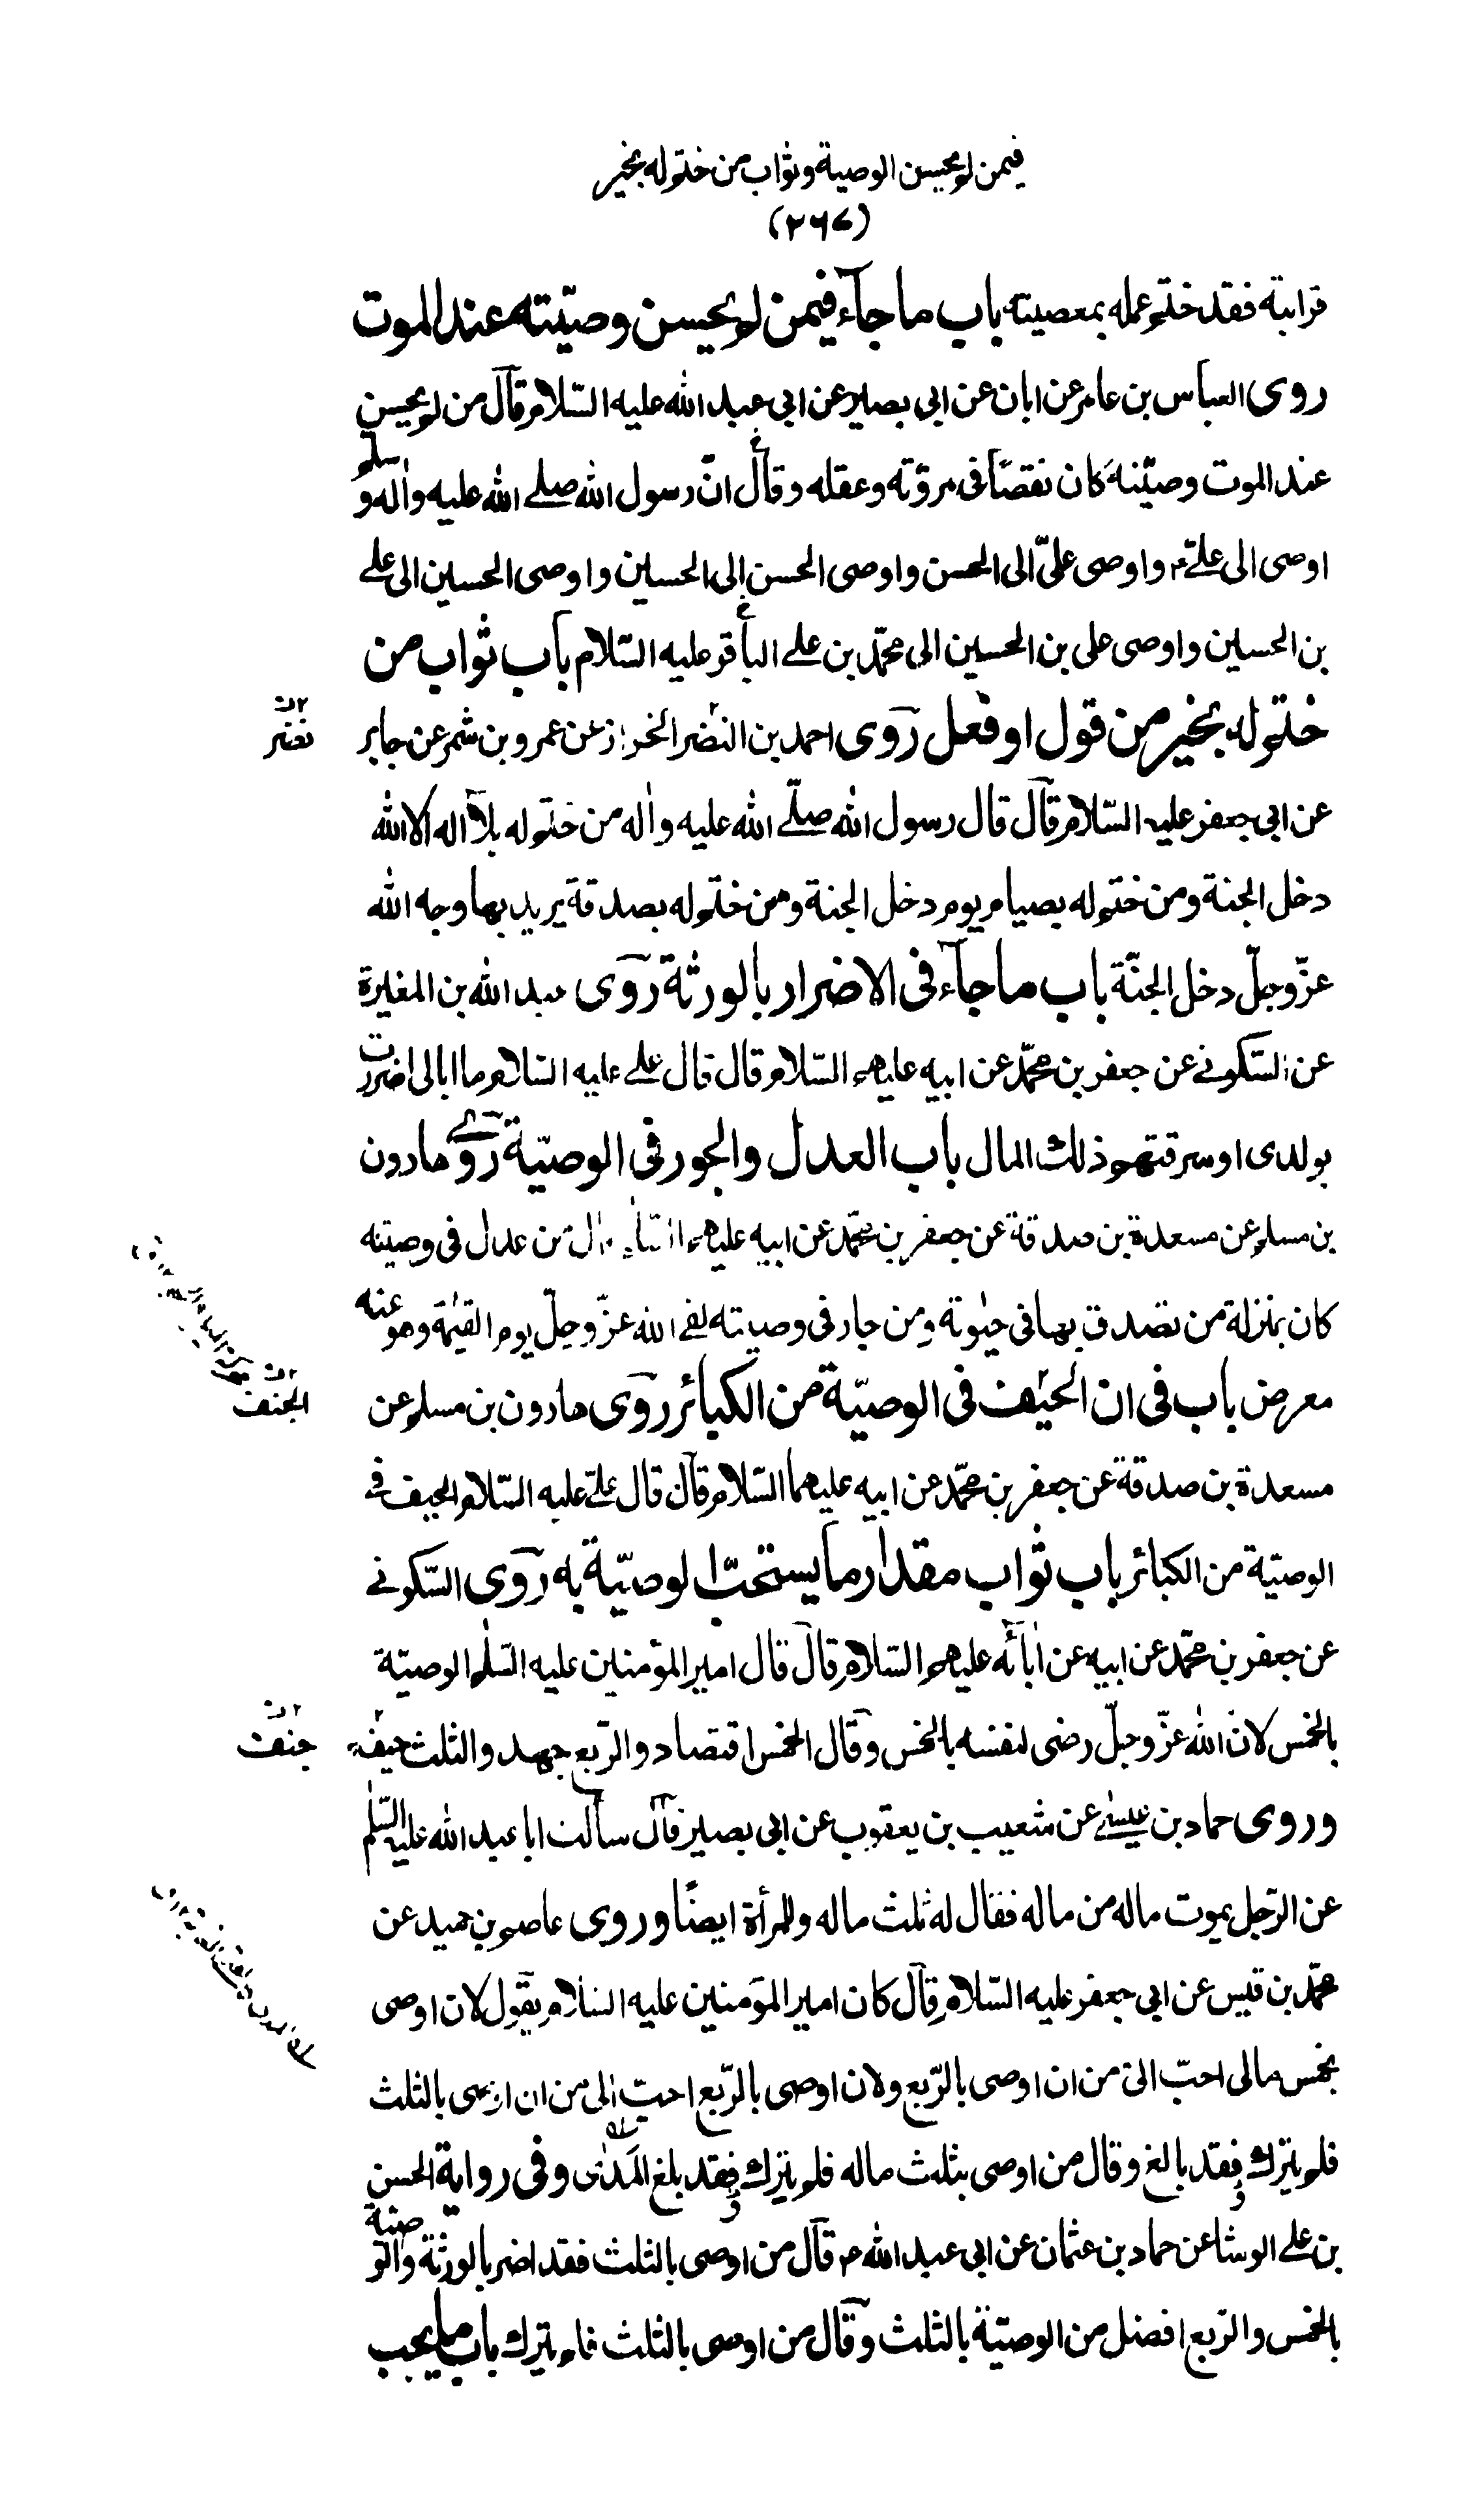 فيمن لم يحسن الوصية وثواب من ختم له بخير
(٢٦٧)
قرابته فقد ختم عمله بمعصيته باب ما جآء فيمن لم يحسن وصيّته عند الموت
روى العباس بن عامر عن ابان عن ابى بصير عن ابى عبد الله عليه السّلام قال من لم يحسن
عند الموت وصيّته كان نقصًا فى مروّته وعقله وقال انّ رسول الله صلے الله عليه واٰله و سلم
اوصى الى علےّ ؑ واوصى علىّ الى الحسن واوصى الحسن الى الحسين واوصى الحسين الى علے
بن الحسين واوصى على بن الحسين الى محمّد بن علے الباقر عليه السّلام باب ثواب من
ختم له بخير من قول او فعل روى احمد بن النضر الخزاز عن عمرو بن شمر عن جابر
عن ابى جعفر عليه السّلام قال قال رسول الله صلّے الله عليه واٰله من ختم له بلا اله الا الله
دخل الجنة ومن ختم له بصيام يوم دخل الجنة ومن ختم له بصدقة يريد بها وجه الله
عزّ وجلّ دخل الجنّة باب ما جآء فى الاضرار بالورثة روى عبد الله بن المغيرة
عن السّكونے عن جعفر بن محمّد عن ابيه عليهم السّلام قال قال علے عليه السّلام ما ابالى اضررت
بولدى او سرقتهم ذلك المال باب العدل والجور فى الوصيّة روے هارون
بن مسلم عن مسعدة بن صدقة عن جعفر بن محمّد عن ابيه عليهم السّلام قال من عدل فى وصيته
كان بمنزلة من تصدق بها فى حيٰوته ومن جار فى وصيته لقے الله عزّ وجلّ يوم القيٰمة وهو عنه
معرض باب فى ان الحيف فى الوصيّة من الكبائر روى هارون بن مسلم عن
مسعدة بن صدقة عن جعفر بن محمّد عن ابيه عليهما السّلام قال قال علےّ عليه السّلام الحيف فے
الوصيّة من الكبائر باب ثواب مقدار ما يستحبّ الوصيّة به روى السّكونے
عن جعفر بن محمّد عن ابيه عن اٰبائه عليهم السّلام قال قال امير المؤمنين عليه السّلٰم الوصيّة
بالخمس لان الله عزّ وجلّ رضى لنفسه بالخمس وقال الخمس اقتصاد والرّبع جهد والثلث حيف
وروى حماد بن عيسٰے عن شعيب بن يعقوب عن ابى بصير قال سالت ابا عبد الله عليه السّلٰم
عن الرّجل يموت ماله من ماله فقال له ثلث ماله وللمرأة ايضًا وروى عاصم بن حميد عن
محمّد بن قيس عن ابى جعفر عليه السّلام قال كان امير المؤمنين عليه السّلام يقول لان اوصى
بخمس مالى احبّ الىّ من ان اوصى بالرّبع ولان اوصى بالرّبع احبّ الى من ان اوصى بالثلث
فلم يترك فقد بالغ وقال من اوصى بثلث ماله فلم يترك فقد بلغ المدٰى وفى رواية الحسن
بن علے الوشا عن حماد بن عثمان عن ابى عبد الله ؑ قال من اوصى بالثلث فقد اضر بالورثة والوصيّة
بالخمس والرّبع افضل من الوصيّة بالثلث وقال من اوصى بالثلث فلم يترك باب ما يجب
الجنف
جنف